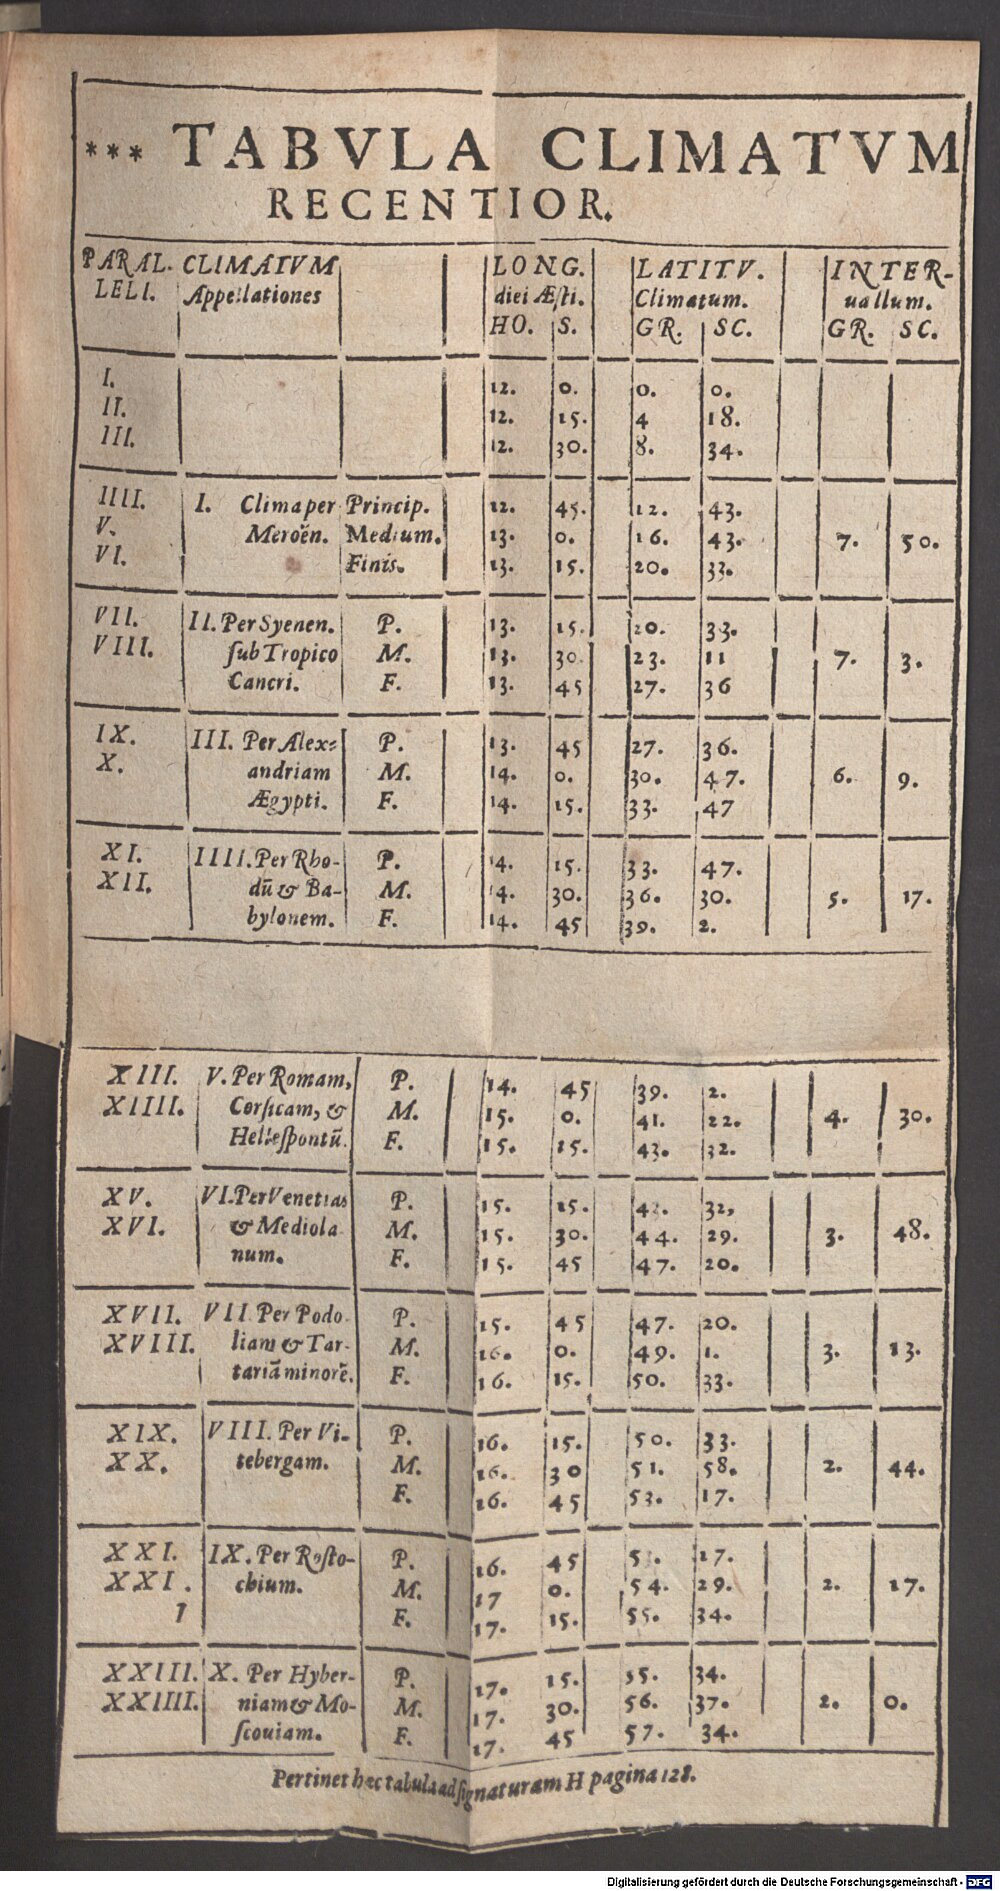 *** TABVLA CLIMATVM
RECENTIOR.
PARAL- CLIMATVM LONG. LATITV. INTER-
LELI. Appellationes diei Æsti. Climatum. uallum.
HO. S. GR. SC. GR. SC.
I. 12. 0. 0. 0.
II. 12. 15. 4 18.
III. 12. 30. 8. 34.
IIII. I. Clima per Princip. 12. 45. 12. 43.
V. Meroën. Medium. 13. 0. 16. 43. 7. 50.
VI. Finis. 13. 15. 20. 33.
VII. II. Per Syenen. P. 13. 15. 20. 33.
VIII. sub Tropico M. 13. 30. 23. 11 7. 3.
Cancri. F. 13. 45 27. 36
IX. III. Per Alex= P. 13. 45 27. 36.
X. andriam M. 14. 0. 30. 47. 6. 9.
Ægypti. F. 14. 15. 33. 47
XI. IIII. Per Rho- P. 14. 15. 33. 47.
XII. dū & Ba- M. 14. 30. 36. 30. 5. 17.
bylonem. F. 14. 45 39. 2.
XIII. V. Per Romam, P. 14. 45 39. 2.
XIIII. Corsicam, & M. 15. 0. 41. 22. 4. 30.
Hellespontū. F. 15. 15. 43. 32.
XV. VI. Per Venetias P. 15. 15. 32,
XVI. & Mediola M. 15. 30. 44. 29. 3. 48.
num. F. 15. 45 47. 20.
XVII. VII Per Podo P. 15. 45 47. 20.
XVIII. liam & Tar- M. 16. 0. 49. 1. 3. 13.
tariā minorē. F. 16. 15. 50. 33.
XIX. VIII. Per Vi- P. 16. 15. 50. 33.
XX. tebergam. M. 16. 30 51. 58. 2. 44.
F. 16. 45 53. 17.
XXI. IX. Per Rosto- P. 16. 45 17.
XXI. chium. M. 17 0. 54. 29. 2. 17.
I F. 17. 15. 55. 34.
XXIII. X. Per Hyber- P. 17. 15. 55. 34.
XXIIII. niam & Mo- M. 17. 30. 56. 37. 2. 0.
scouiam. F. 17. 45 57. 34.
Pertinet hæc tabula ad signaturam H pagina 128.
Digitalisierung gefördert durch die Deutsche Forschungsgemeinschaft - DFG